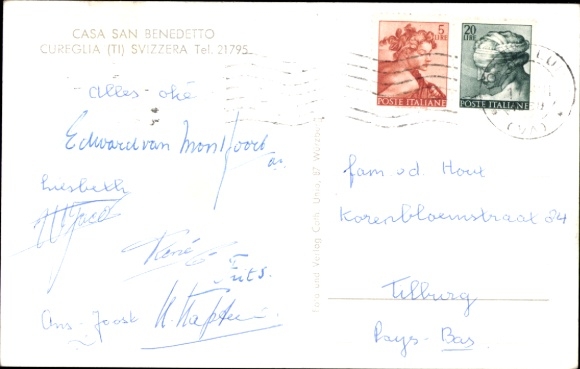 CASA SAN BENEDETTO
CUREGLIA (TI) SVIZZERA Tel. 21795
- alles - oké
Edward van Montfoort
Liesbeth
René
Frits.
Ans - Joost
5 LIRE
POSTE ITALIANE
20 LIRE
POSTE ITALIANE
(VA)
Foto und Verlag Gebr.
fam. v.d. Hout
Korenbloemstraat 84
Tilburg
Pays-Bas